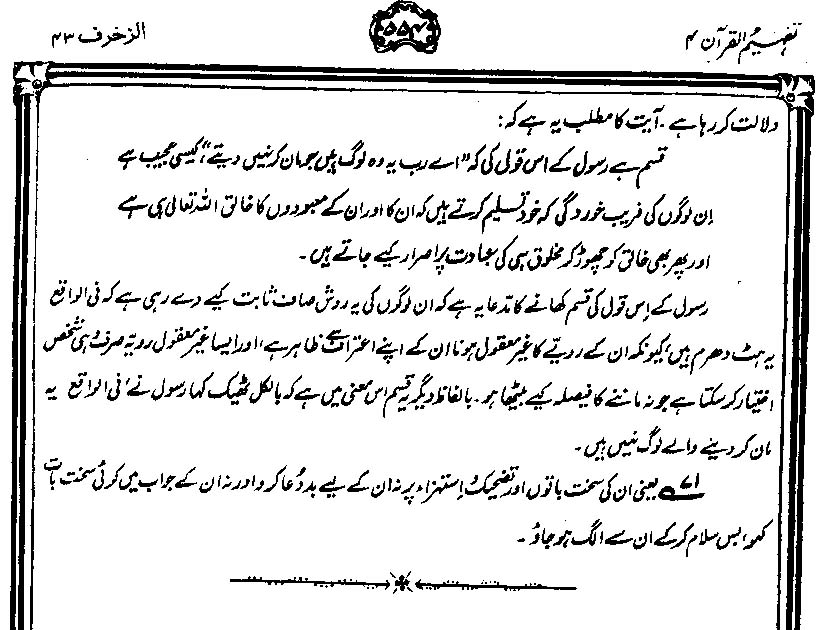 تفہیم القرآن ۴
۵۵۴
الزخرف ۴۳
دلالت کر رہا ہے۔ آیت کا مطلب یہ ہے کہ:
قسم ہے رسول کے اس قول کی کہ "اے رب یہ وہ لوگ ہیں جو مان کر نہیں دیتے"، کیسی عجیب ہے
اِن لوگوں کی فریب خوردگی کہ خود تسلیم کرتے ہیں کہ ان کا اور ان کے معبودوں کا خالق اللہ تعالیٰ ہی ہے
اور پھر بھی خالق کو چھوڑ کر مخلوق ہی کی عبادت پر اصرار کیے جاتے ہیں۔
رسول کے اِس قول کی قسم کھانے کا مدعا یہ ہے کہ ان لوگوں کی یہ روش صاف ثابت کیے دے رہی ہے کہ فی الواقع
یہ ہٹ دھرم ہیں، کیونکہ ان کے رویّے کا غیر معقول ہونا ان کے اپنے اعتراف سے ظاہر ہے، اور ایسا غیر معقول رویّہ صرف وہی شخص
اختیار کر سکتا ہے جو نہ ماننے کا فیصلہ کیے بیٹھا ہو۔ بالفاظ دیگر یہ قسم اس معنی میں ہے کہ بالکل ٹھیک کہا رسول نے، فی الواقع یہ
مان کر دینے والے لوگ نہیں ہیں۔
۷۱ یعنی ان کی سخت باتوں اور تضحیک و اِستہزاء پر نہ ان کے لیے بد دُعا کرو اور نہ ان کے جواب میں کوئی سخت بات
کہو، بس سلام کر کے ان سے الگ ہو جاؤ۔